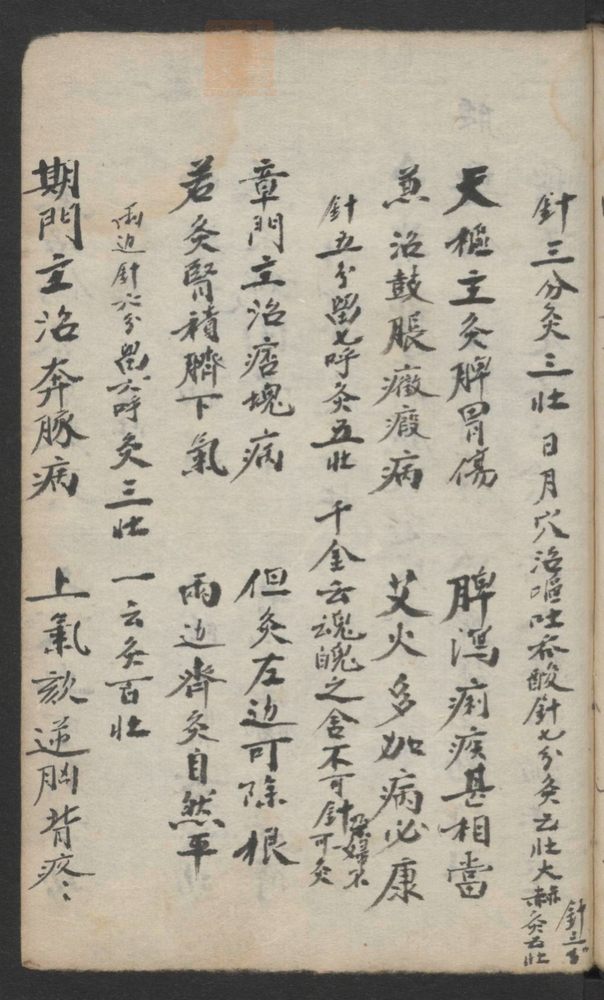 針三分灸三壮 日月穴治嘔吐吞酸針七分灸五壮大赫灸五壮
針三分
天樞主灸脾胃傷 脾瀉痢疾甚相當
兼治鼓脹癥瘕病 艾火多加病必康
針五分留七呼灸五壮 千金云魂魄之舍不可針可灸
孕婦不
章門主治痞塊病 但灸左边可除根
若灸腎積臍下氣 両边齊灸自然平
両边針六分留六呼灸三壮 一云灸百壮
期門主治奔豚病 上氣欬逆胸背疼